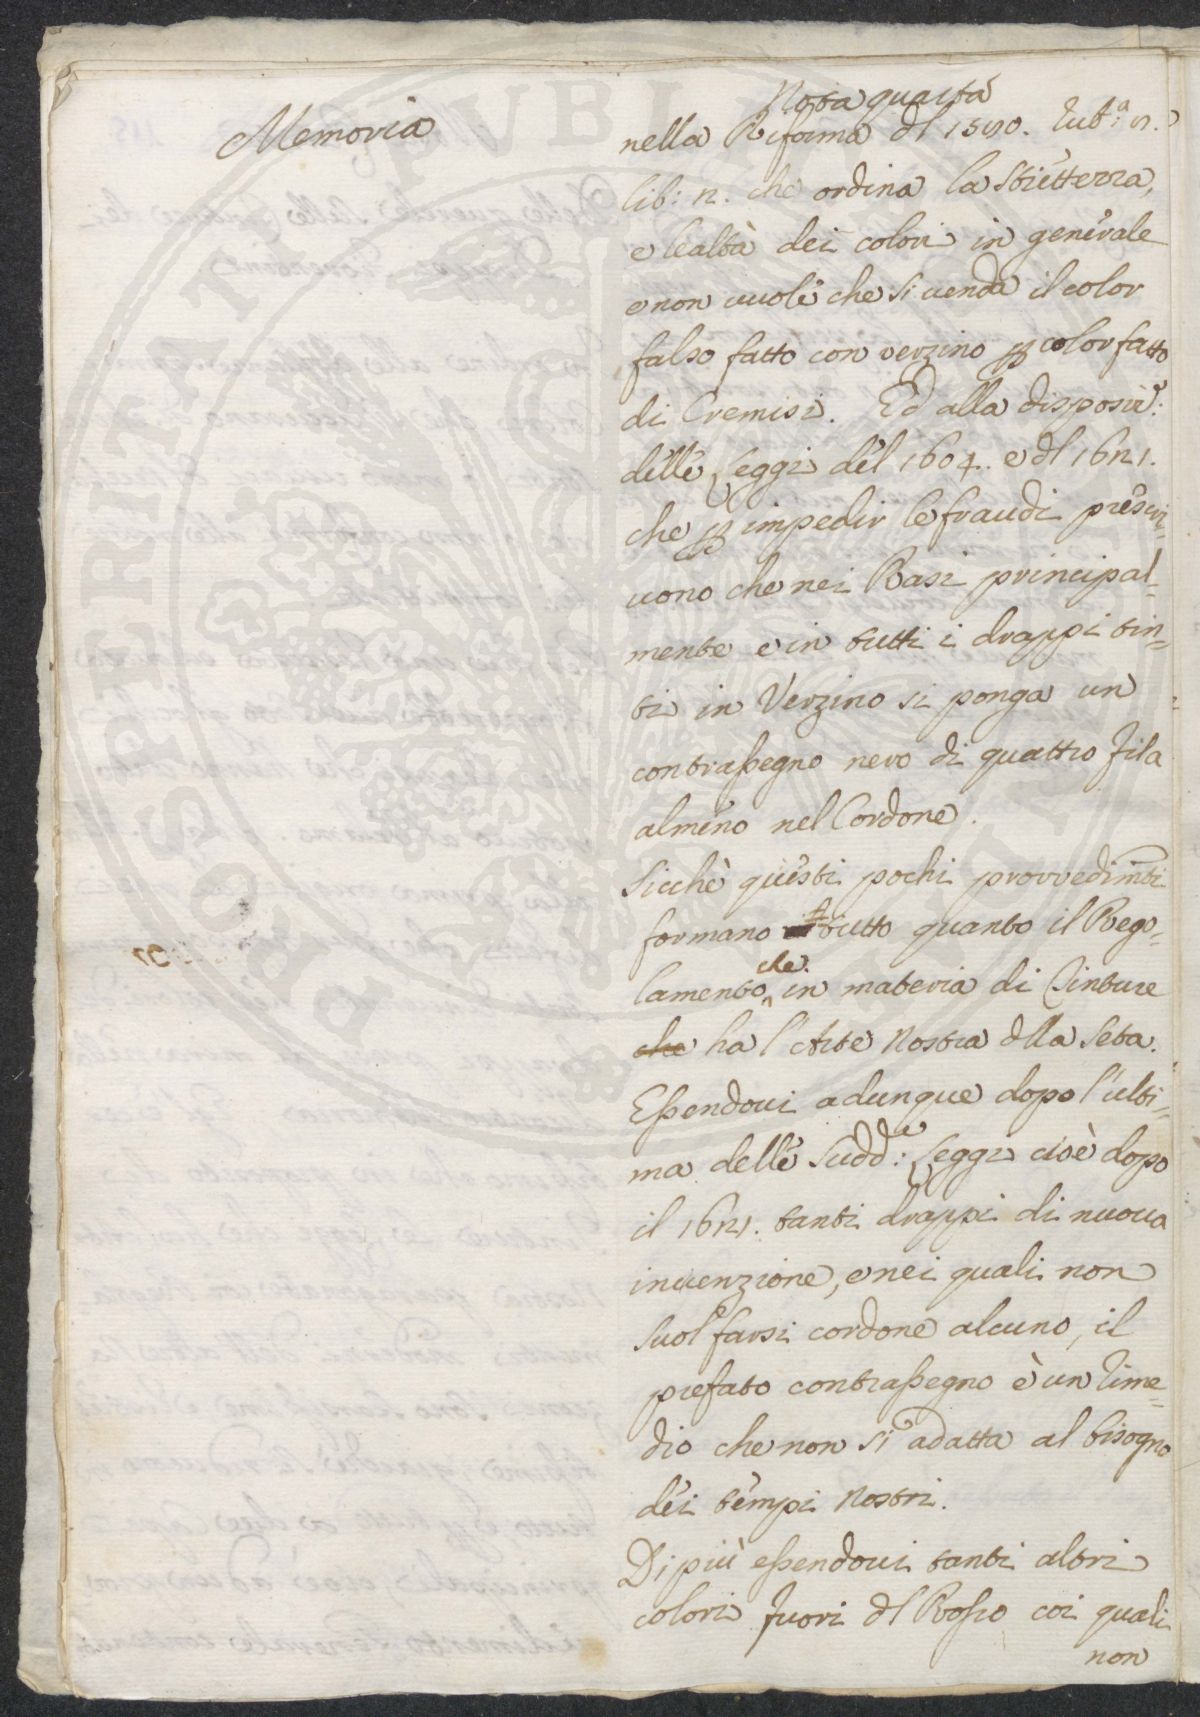 Memoria
Nota quarta
nella Riforma dl 1580. Rub:ª 5.
lib: 2. che ordina la Stiettezza,
e lealtà dei colori in generale
e non vuole che si venda il color
falso fatto con verzino p color fatto
di Cremisi. Ed alla disposiz:e
delle Leggi del 1604. e dl 1621.
che p impedir le fraudi prescri=
vono che nei Rasi principal=
mente e in tutti i drappi tin=
ti in Verzino si ponga un
contrassegno nero di quattro fila
almeno nel Cordone.
Sicchè questi pochi provvedimti
formano tutto quanto il Rego=
lamento che in materia di Tinture
che ha l'Arte Nostra dlla Seta.
Essendovi adunque dopo l'ulti=
ma delle Sudd:e Leggi cioè dopo
il 1621. tanti drappi di nuova
invenzione, e nei quali non
suol farsi cordone alcuno, il
prefato contrassegno è un Rime=
dio che non si adatta al bisogno
dei tempi Nostri.
Di più essendovi tanti altri
colori fuori dl Rosso coi quali
non
PROSPERITATI PUBLICAE